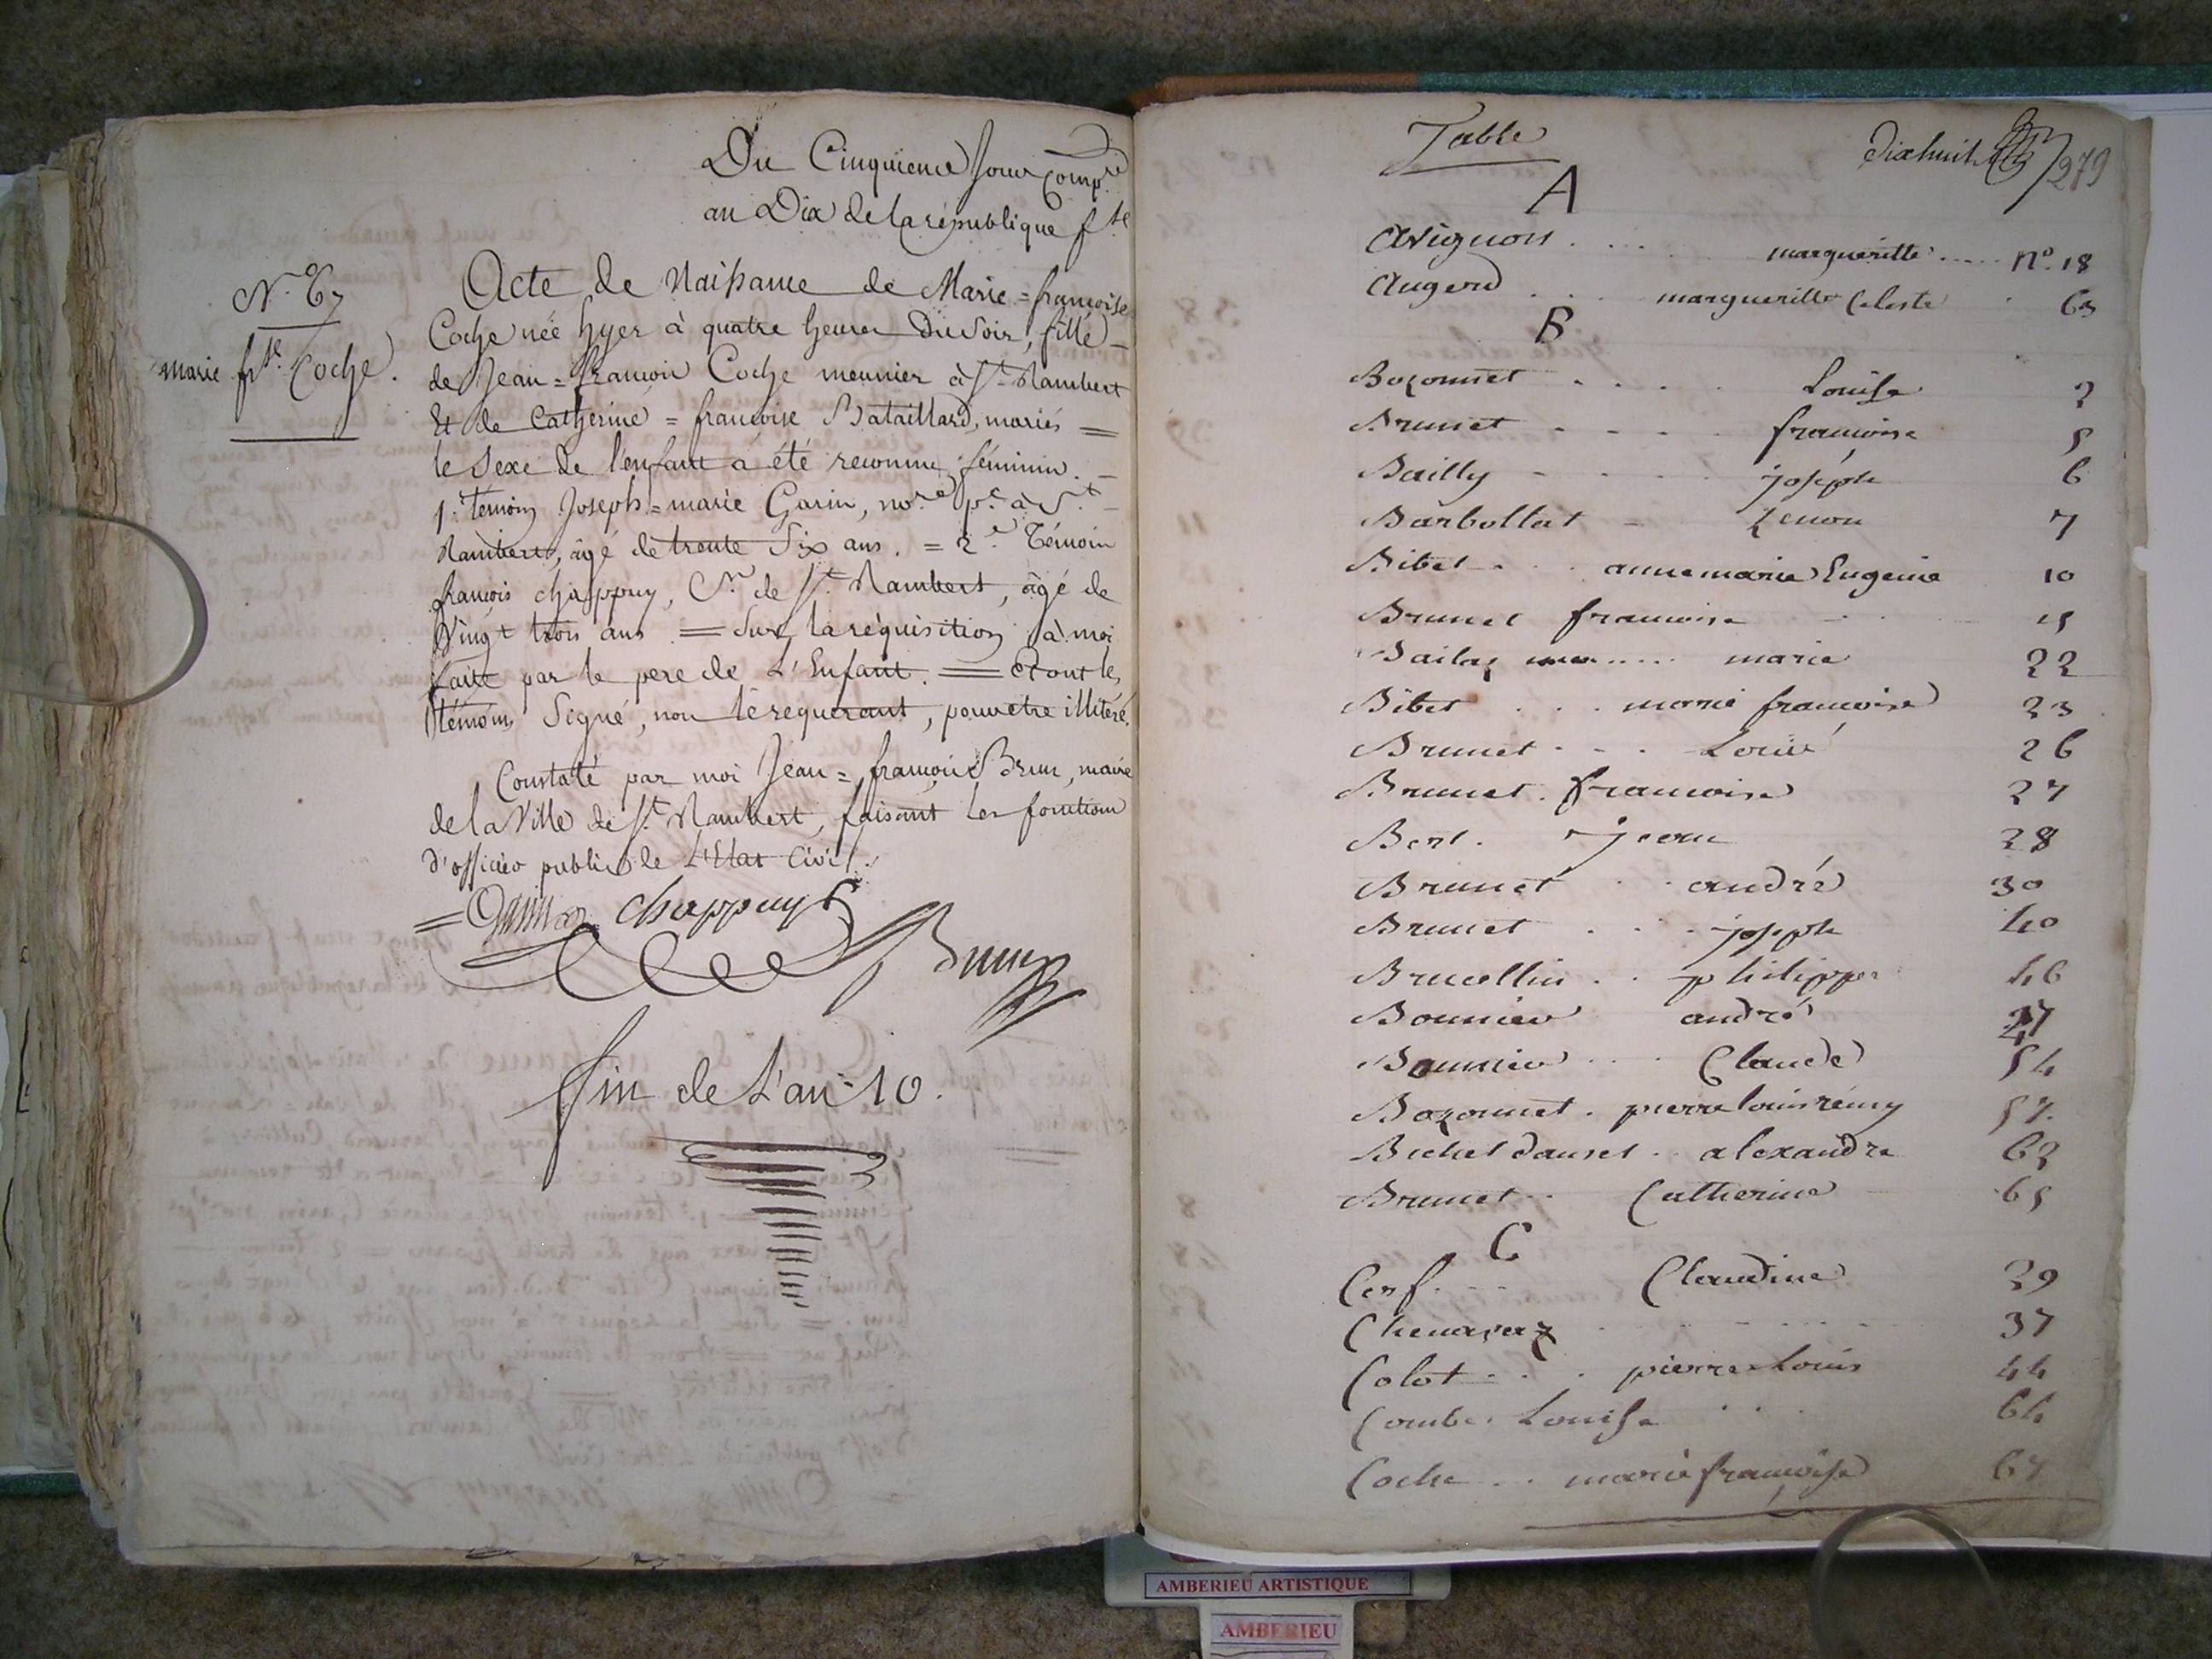 Du Cinquieme Jour Comp.re
an Dix de la république f.se
N.o 67
marie fr.se Coche.
Acte de Naissance de Marie = françoise
Coche née hyer à quatre heures du Soir, fille
de Jean = françois Coche meunier à S.t Rambert
Et de Catherine = françoise Bataillard, mariés =
le Sexe de l'enfant a été reconnu féminin. =
1.r témoin Joseph = marie Garin, no.re p.c à S.t
Rambert, âgé de trente Six ans. = 2.e Témoin
françois chappuy, C.n de S.t Rambert, âgé de
Vingt trois ans = Sur la réquisition à moi
faite par le pere de L'Enfant. = Et ont les
témoins Signé, non le requerant, pour etre illitéré.
Constaté par moi Jean = françois Brun, maire
de la Ville de S.t Rambert, faisant les fonctions
d'officier public de L'Etat Civil.
= Garin chappuy
Brun
fin de L'an 10.
Table
Dixhuit 279
A
Avignon .... margueritte .... n.o 18
Augerd ... margueritte Celeste . 63
B
Bozonnet .... Louise 2
Brunet - - - - françoise 5
Bailly - - - joseph 6
Barbollat - Zenon 7
Bibet . . . anne marie Eugenie 10
Brunet françoise 15
marie 22
Bibet . . . marie françoise 23
Brunet - - . Louis 26
Brunet . françoise 27
Bert . jean 28
Brunet . . andré 30
Brunet . . . joseph 40
Brucellin . . philippe 46
Bonnier andré 47
Bonnier . . . Claude 54
Bozonnet . pierre louis rémy 57.
Bichet dansel . alexandre 62
Brunet . . Catherine 65
C
Cerf . - - Claudine 29
Chenavaz - - - - - 37
Colot . . . pierre Louis 44
Combe . Louise . . . 64
Coche . . . marie françoise 67
AMBERIEU ARTISTIQUE
AMBERIEU